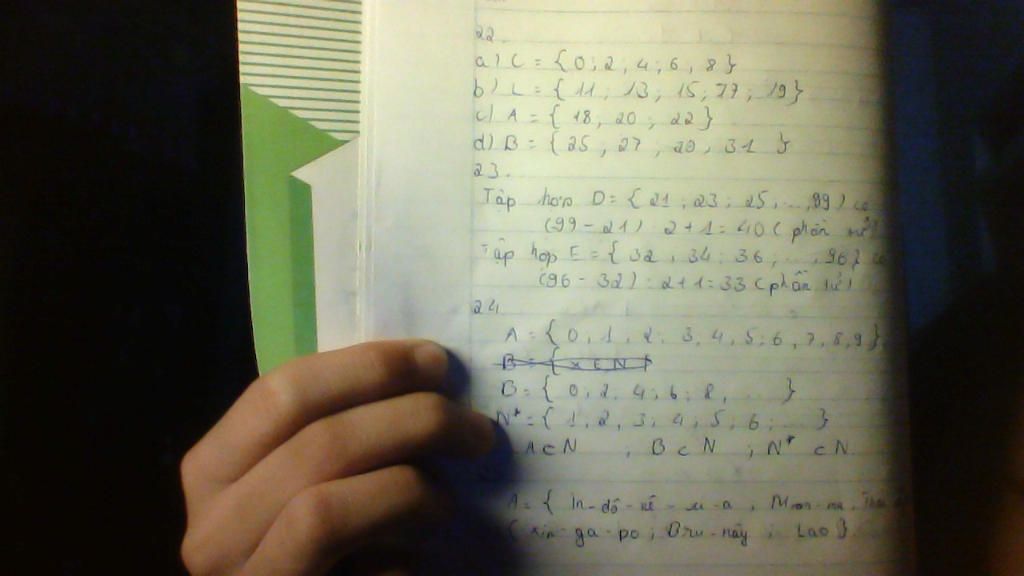 22.
a) C = { 0 ; 2 ; 4 ; 6 ; 8 }
b) L = { 11 ; 13 ; 15 ; 17 ; 19 }
c) A = { 18 ; 20 ; 22 }
d) B = { 25 ; 27 ; 29 ; 31 }
23.
Tập hợp D = { 21 ; 23 ; 25 ; ... ; 99 } có
(99 - 21) : 2 + 1 = 40 ( phần tử )
Tập hợp E = { 32 ; 34 ; 36 ; ... ; 96 } có
(96 - 32) : 2 + 1 = 33 ( phần tử )
24
A = { 0 , 1 , 2 , 3 , 4 , 5 ; 6 , 7 , 8 , 9 }
B = { x ∈ N }
B = { 0 , 2 , 4 ; 6 ; 8 , ... }
N* = { 1 , 2 , 3 ; 4 ; 5 ; 6 ; ... }
A ⊂ N ; B ⊂ N ; N* ⊂ N
A = { In-đô-nê-xi-a ; Mi-an-ma ; Thái
Xin-ga-po ; Bru-nây ; Lào }